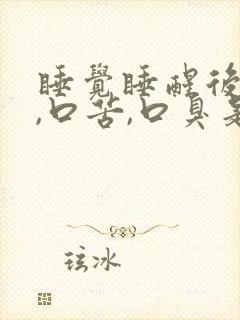 睡覺睡醒後
,口苦,口臭是
玹冰